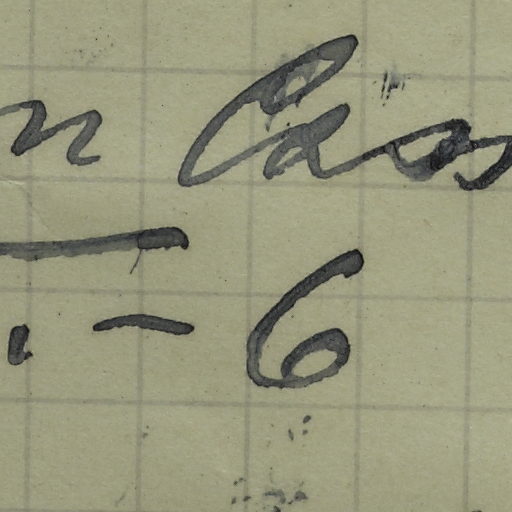 n Cass
. – 6